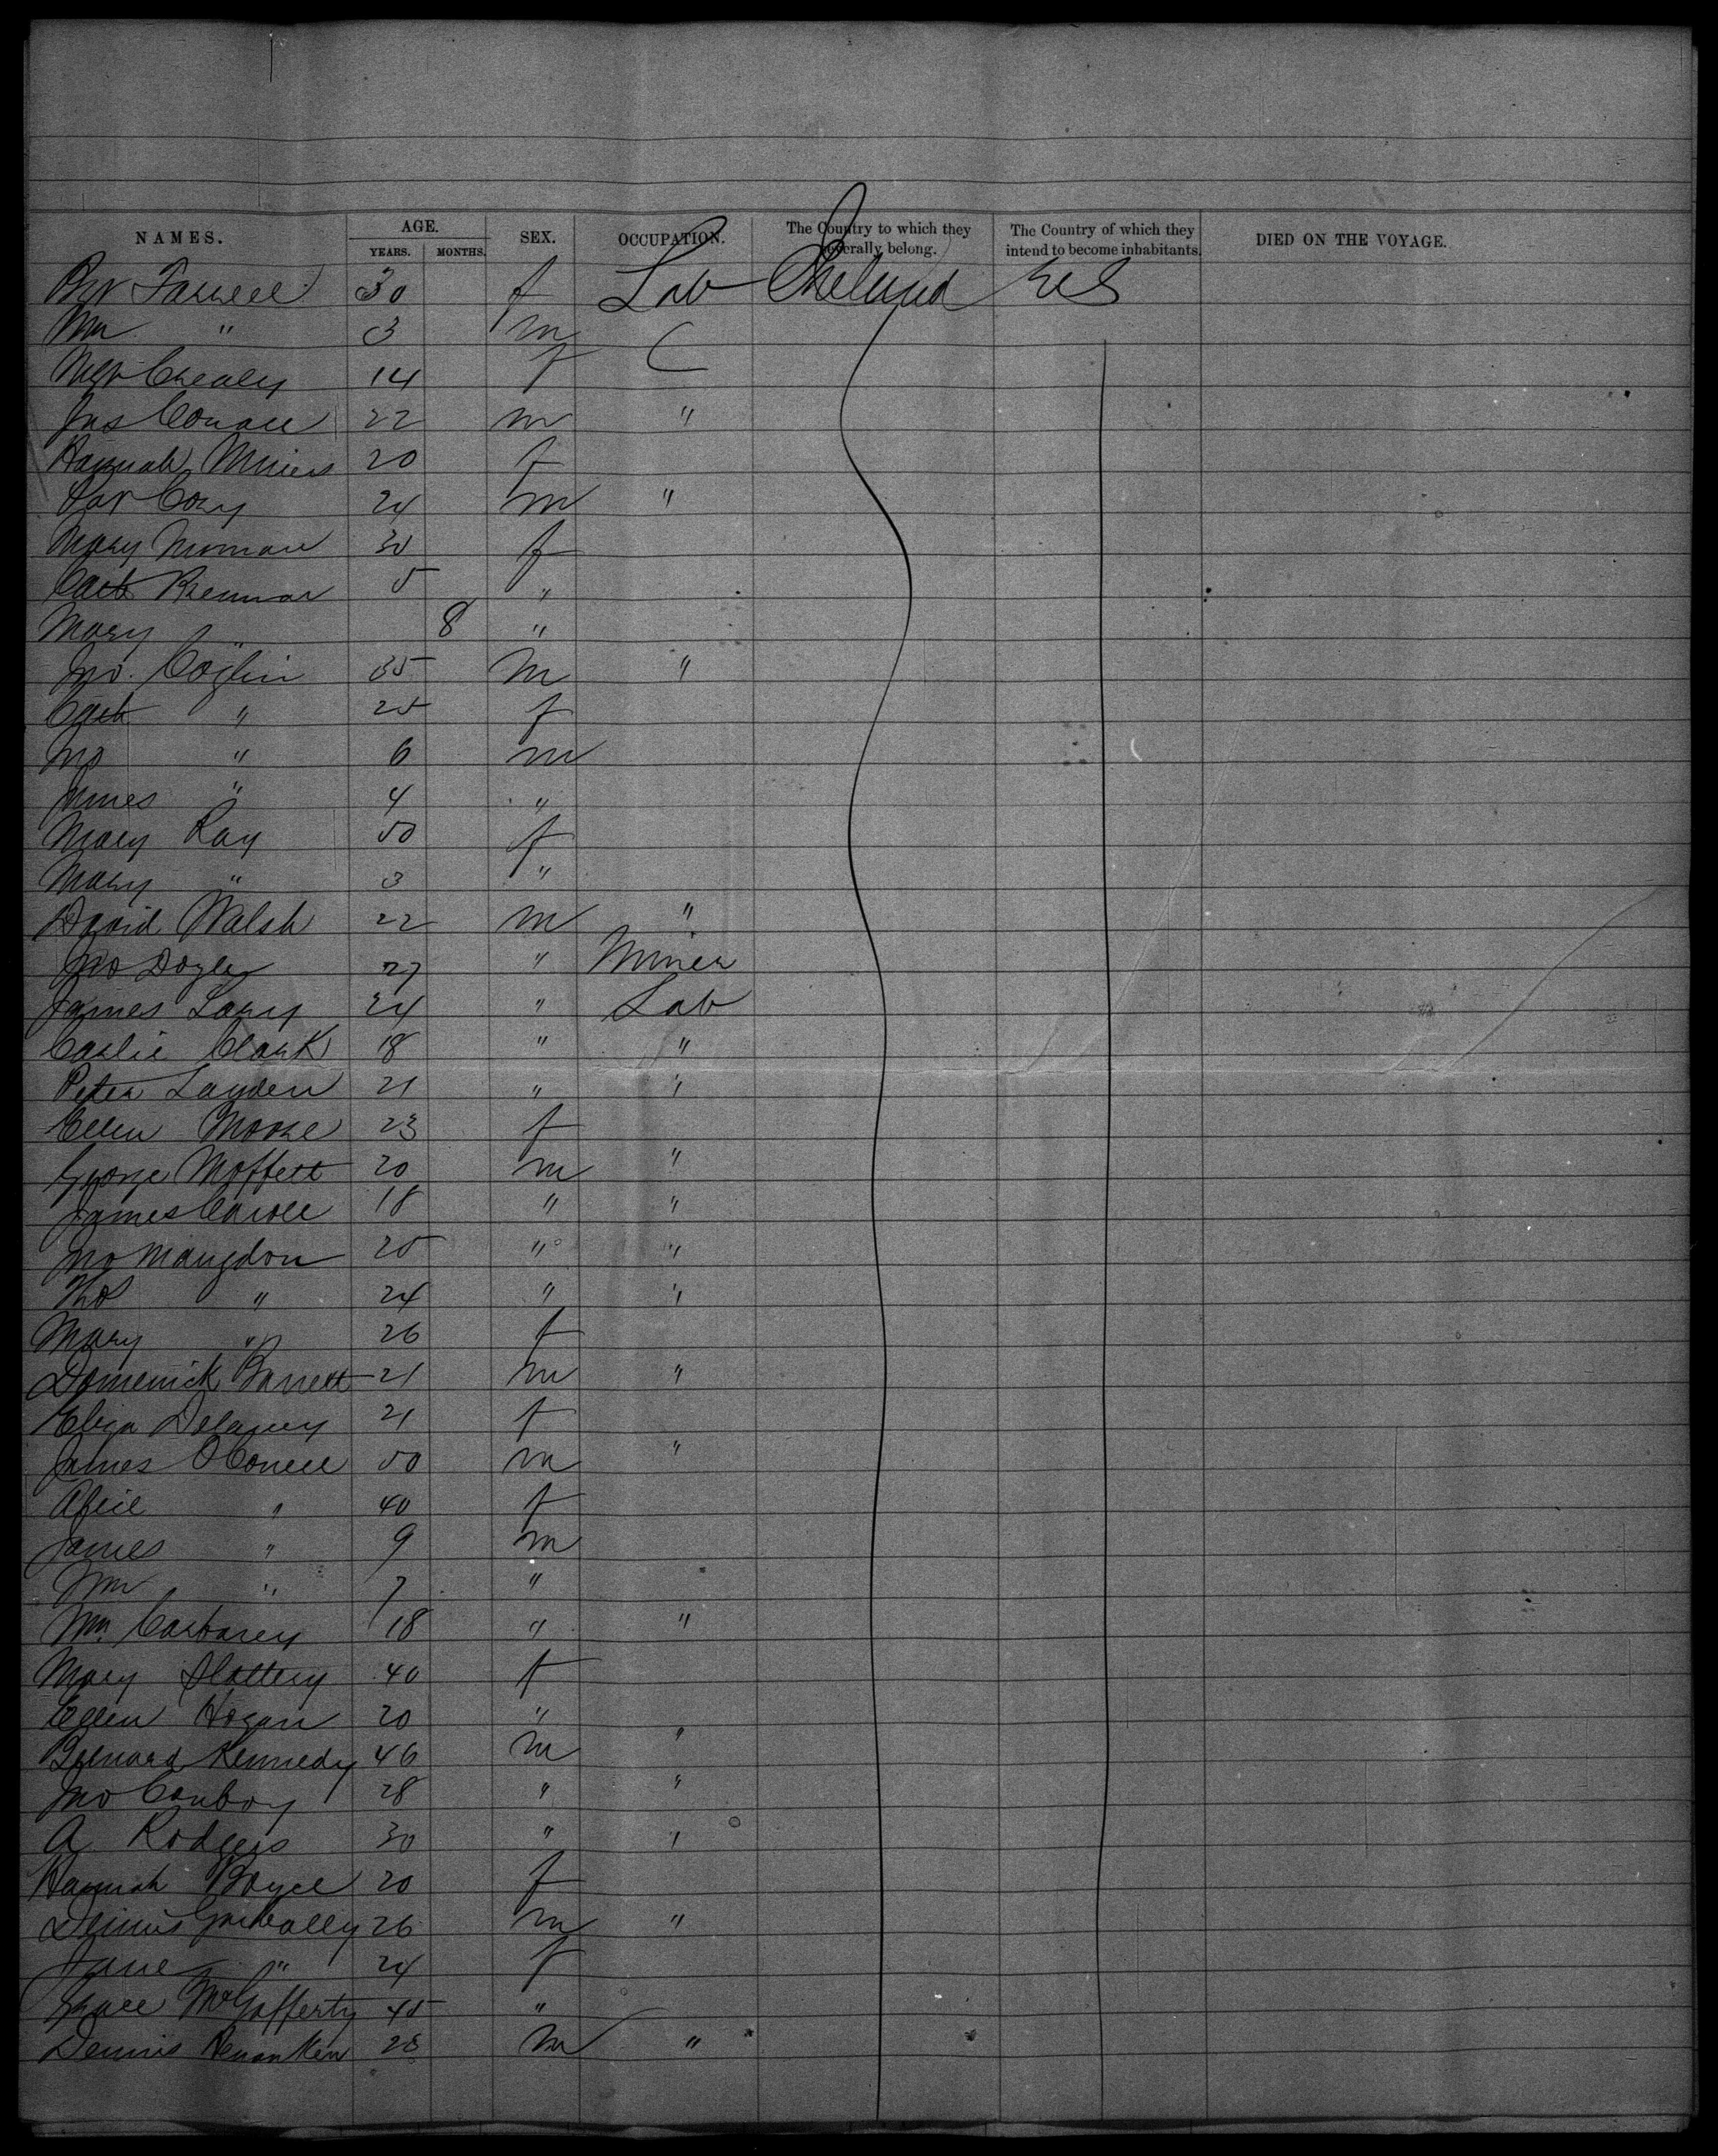 NAMES. AGE. SEX. OCCUPATION. The Country to which they severally belong. The Country of which they intend to become inhabitants. DIED ON THE VOYAGE.
YEARS. MONTHS.
Farrell 30 f Lab Ireland US
Wm " 3 m
14 f
Jas 22 m "
Hannah 20 f
Pat Cory 24 m "
Mary 30 f
Cath Brennan 5 "
Mary " 8 "
Jno. Coglin 35 m "
Cath " 25 f
Jno " 6 m
James " 4 "
Mary Ray 50 f
Mary " 3 "
David Walsh 22 m "
Jno Doyle 27 " Miner
James Lary 24 " Lab
Carlie Clark 18 " "
Peter Layden 21 " "
Ellen Moore 23 f
George Moffett 20 m "
James Caroll 18 " "
Jno Mangdon 25 " "
Tho " 24 " "
Mary " 26 f
Domenick Barrett 21 m "
Eliza Delaney 21 f
James OConell 50 m "
" 40 f
James " 9 m
Wm " 7 "
Wm. Carbarey 18 " "
Mary Slattery 40 f
Ellen Hogan 20 "
Bernard Kennedy 46 m "
Jno Conboy 28 " "
A Rodgers 30 " "
Hannah Boyce 20 f
Dennis 26 m "
Jane " 24 f
Grace McGafferty 45 "
Dennis 28 m "